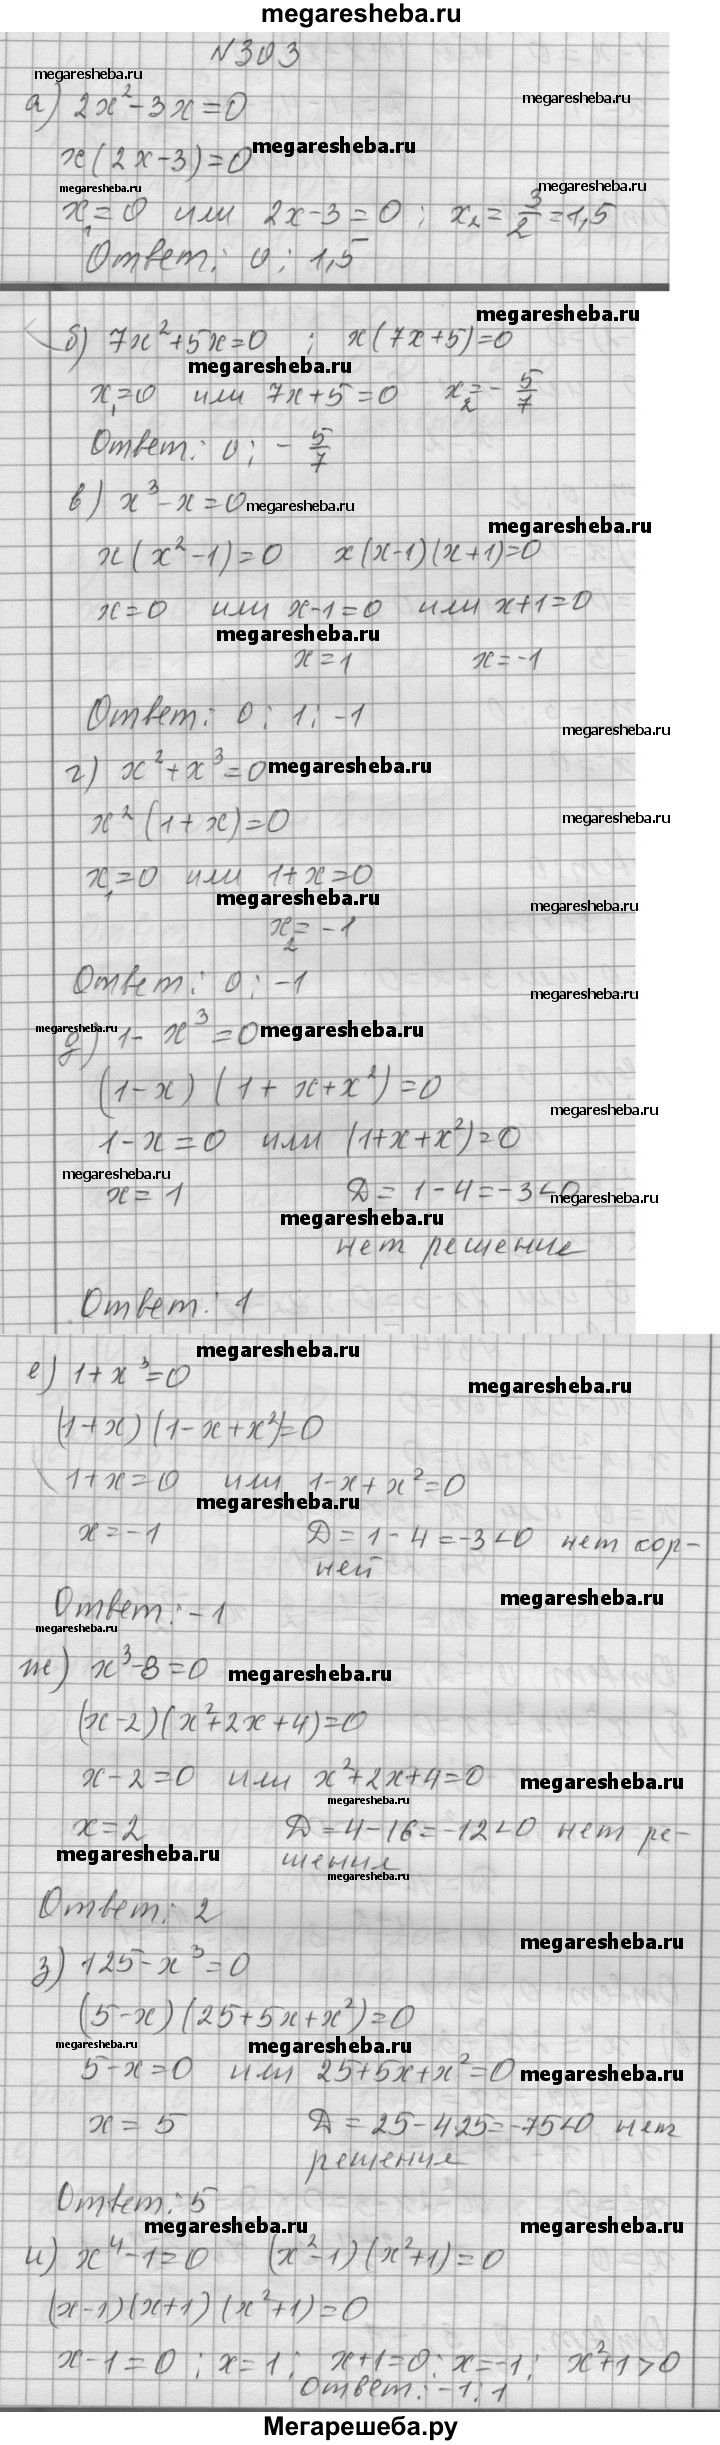 megaresheba.ru
N303
megaresheba.ru
а) 2x²-3x=0 megaresheba.ru
x(2x-3)=0 megaresheba.ru
megaresheba.ru megaresheba.ru
x₁=0 или 2x-3=0; x₂=3/2=1,5
Ответ: 0; 1,5
megaresheba.ru
б) 7x²+5x=0; x(7x+5)=0
megaresheba.ru
x₁=0 или 7x+5=0 x₂=-5/7
Ответ: 0; -5/7
в) x³-x=0 megaresheba.ru
megaresheba.ru
x(x²-1)=0 x(x-1)(x+1)=0
x=0 или x-1=0 или x+1=0
megaresheba.ru
x=1 x=-1
Ответ: 0; 1; -1
megaresheba.ru
г) x²+x³=0 megaresheba.ru
x²(1+x)=0 megaresheba.ru
x₁=0 или 1+x=0
megaresheba.ru megaresheba.ru
x₂=-1
Ответ: 0; -1 megaresheba.ru
megaresheba.ru
д) 1-x³=0 megaresheba.ru
(1-x)(1+x+x²)=0
megaresheba.ru
1-x=0 или (1+x+x²)=0
megaresheba.ru
x=1 D=1-4=-3<0 megaresheba.ru
megaresheba.ru
нет решение
Ответ: 1
megaresheba.ru
е) 1+x³=0
megaresheba.ru
(1+x)(1-x+x²)=0
1+x=0 или 1-x+x²=0
megaresheba.ru
x=-1 D=1-4=-3<0 нет кор-
ней
megaresheba.ru
Ответ: -1
megaresheba.ru
ж) x³-8=0 megaresheba.ru
(x-2)(x²+2x+4)=0
x-2=0 или x²+2x+4=0 megaresheba.ru
megaresheba.ru
x=2 D=4-16=-12<0 нет ре-
megaresheba.ru шения
megaresheba.ru
Ответ: 2
megaresheba.ru
з) 125-x³=0
(5-x)(25+5x+x²)=0
megaresheba.ru megaresheba.ru
5-x=0 или 25+5x+x²=0 megaresheba.ru
x=5 D=25-4·25=-75<0 нет
решение
Ответ: 5
megaresheba.ru megaresheba.ru
и) x⁴-1=0 (x²-1)(x²+1)=0
(x-1)(x+1)(x²+1)=0
x-1=0; x=1; x+1=0; x=-1; x²+1>0
Ответ: -1; 1
Мегарешеба.ру